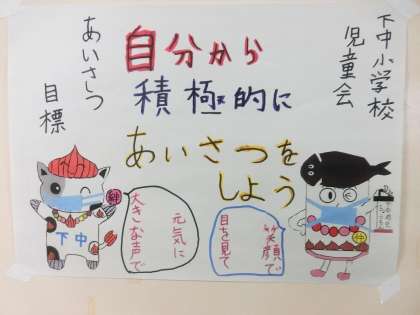 下中小学校
児童会
あいさつ
目標
自分から
積極的に
あいさつを
しよう
笑顔で
目を見て
元気に
大きな声で
下中